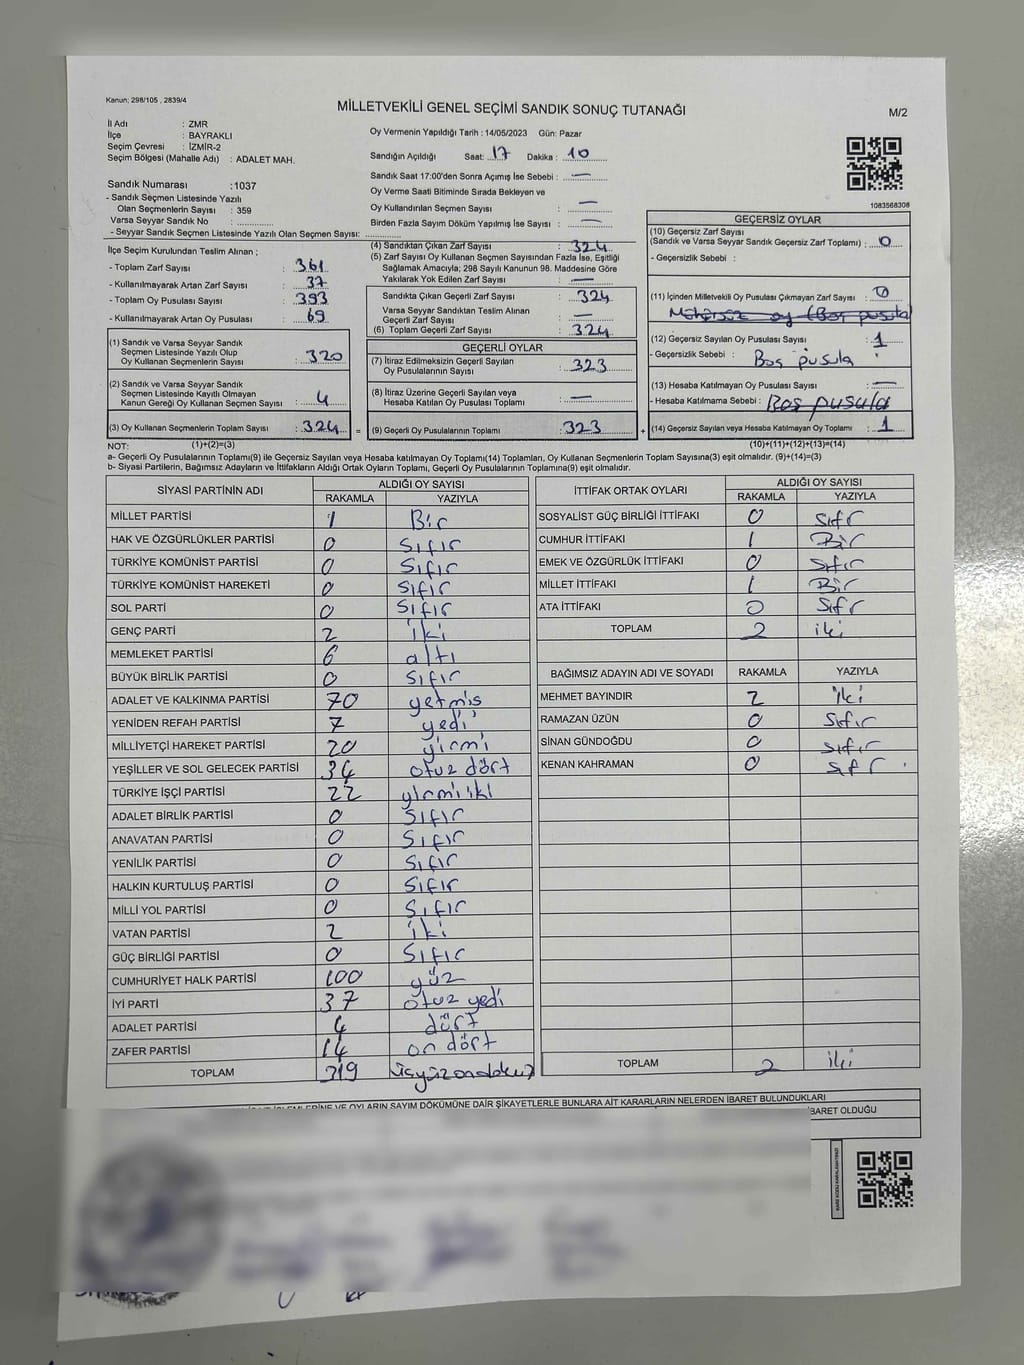 Kanun; 298/105 , 2839/4
MİLLETVEKİLİ GENEL SEÇİMİ SANDIK SONUÇ TUTANAĞI
M/2
İl Adı : ZMR
İlçe : BAYRAKLI
Seçim Çevresi : İZMİR-2
Seçim Bölgesi (Mahalle Adı) : ADALET MAH.
Oy Vermenin Yapıldığı Tarih : 14/05/2023 Gün: Pazar
Sandığın Açıldığı Saat: 17 Dakika : 10
Sandık Saat 17:00'den Sonra Açımış İse Sebebi : —
Oy Verme Saati Bitiminde Sırada Bekleyen ve
Oy Kullandırılan Seçmen Sayısı : —
Birden Fazla Sayım Döküm Yapılmış İse Sayısı : —
1083568308
Sandık Numarası :1037
- Sandık Seçmen Listesinde Yazılı
Olan Seçmenlerin Sayısı : 359
Varsa Seyyar Sandık No :
- Seyyar Sandık Seçmen Listesinde Yazılı Olan Seçmen Sayısı:
İlçe Seçim Kurulundan Teslim Alınan ;
- Toplam Zarf Sayısı : 361
- Kullanılmayarak Artan Zarf Sayısı : 37
- Toplam Oy Pusulası Sayısı : 393
- Kullanılmayarak Artan Oy Pusulası : 69
(1) Sandık ve Varsa Seyyar Sandık
Seçmen Listesinde Yazılı Olup
Oy Kullanan Seçmenlerin Sayısı : 320
(2) Sandık ve Varsa Seyyar Sandık
Seçmen Listesinde Kayıtlı Olmayan
Kanun Gereği Oy Kullanan Seçmen Sayısı : 4
(3) Oy Kullanan Seçmenlerin Toplam Sayısı : 324 =
(4) Sandıktan Çıkan Zarf Sayısı : 324
(5) Zarf Sayısı Oy Kullanan Seçmen Sayısından Fazla İse, Eşitliği
Sağlamak Amacıyla; 298 Sayılı Kanunun 98. Maddesine Göre
Yakılarak Yok Edilen Zarf Sayısı : —
Sandıkta Çıkan Geçerli Zarf Sayısı : 324
Varsa Seyyar Sandıktan Teslim Alınan
Geçerli Zarf Sayısı : —
(6) Toplam Geçerli Zarf Sayısı : 324
GEÇERLİ OYLAR
(7) İtiraz Edilmeksizin Geçerli Sayılan
Oy Pusulalarının Sayısı : 323
(8) İtiraz Üzerine Geçerli Sayılan veya
Hesaba Katılan Oy Pusulası Toplamı : —
(9) Geçerli Oy Pusulalarının Toplamı : 323 +
GEÇERSİZ OYLAR
(10) Geçersiz Zarf Sayısı
(Sandık ve Varsa Seyyar Sandık Geçersiz Zarf Toplamı) : 0
- Geçersizlik Sebebi :
(11) İçinden Milletvekili Oy Pusulası Çıkmayan Zarf Sayısı : 0
oy (Boş pusula)
(12) Geçersiz Sayılan Oy Pusulası Sayısı : 1
- Geçersizlik Sebebi : Boş pusula
(13) Hesaba Katılmayan Oy Pusulası Sayısı : —
- Hesaba Katılmama Sebebi : Boş pusula
(14) Geçersiz Sayılan veya Hesaba Katılmayan Oy Toplamı : 1
NOT: (1)+(2)=(3) (10)+(11)+(12)+(13)=(14)
a- Geçerli Oy Pusulalarının Toplamı(9) ile Geçersiz Sayılan veya Hesaba katılmayan Oy Toplamı(14) Toplamları, Oy Kullanan Seçmenlerin Toplam Sayısına(3) eşit olmalıdır. (9)+(14)=(3)
b- Siyasi Partilerin, Bağımsız Adayların ve İttifakların Aldığı Ortak Oyların Toplamı, Geçerli Oy Pusulalarının Toplamına(9) eşit olmalıdır.
SİYASİ PARTİNİN ADI ALDIĞI OY SAYISI
RAKAMLA YAZIYLA
MİLLET PARTİSİ 1 Bir
HAK VE ÖZGÜRLÜKLER PARTİSİ 0 Sıfır
TÜRKİYE KOMÜNİST PARTİSİ 0 Sıfır
TÜRKİYE KOMÜNİST HAREKETİ 0 Sıfır
SOL PARTİ 0 Sıfır
GENÇ PARTİ 2 iki
MEMLEKET PARTİSİ 6 altı
BÜYÜK BİRLİK PARTİSİ 0 Sıfır
ADALET VE KALKINMA PARTİSİ 70 yetmiş
YENİDEN REFAH PARTİSİ 7 yedi
MİLLİYETÇİ HAREKET PARTİSİ 20 yirmi
YEŞİLLER VE SOL GELECEK PARTİSİ 34 otuz dört
TÜRKİYE İŞÇİ PARTİSİ 22 yirmi iki
ADALET BİRLİK PARTİSİ 0 Sıfır
ANAVATAN PARTİSİ 0 Sıfır
YENİLİK PARTİSİ 0 Sıfır
HALKIN KURTULUŞ PARTİSİ 0 Sıfır
MİLLİ YOL PARTİSİ 0 Sıfır
VATAN PARTİSİ 2 iki
GÜÇ BİRLİĞİ PARTİSİ 0 Sıfır
CUMHURİYET HALK PARTİSİ 100 yüz
İYİ PARTİ 37 otuz yedi
ADALET PARTİSİ 4 dört
ZAFER PARTİSİ 14 on dört
TOPLAM 319 üçyüzondokuz
İTTİFAK ORTAK OYLARI ALDIĞI OY SAYISI
RAKAMLA YAZIYLA
SOSYALİST GÜÇ BİRLİĞİ İTTİFAKI 0 Sıfr
CUMHUR İTTİFAKI 1 Bir
EMEK VE ÖZGÜRLÜK İTTİFAKI 0 Sıfır
MİLLET İTTİFAKI 1 Bir
ATA İTTİFAKI 0 Sıfr
TOPLAM 2 iki
BAĞIMSIZ ADAYIN ADI VE SOYADI RAKAMLA YAZIYLA
MEHMET BAYINDIR 2 iki
RAMAZAN ÜZÜN 0 Sıfır
SİNAN GÜNDOĞDU 0 Sıfır
KENAN KAHRAMAN 0 Sıfr
TOPLAM 2 iki
İŞLEMLERİNE VE OYLARIN SAYIM DÖKÜMÜNE DAİR ŞİKAYETLERLE BUNLARA AİT KARARLARIN NELERDEN İBARET BULUNDUKLARI
İBARET OLDUĞU